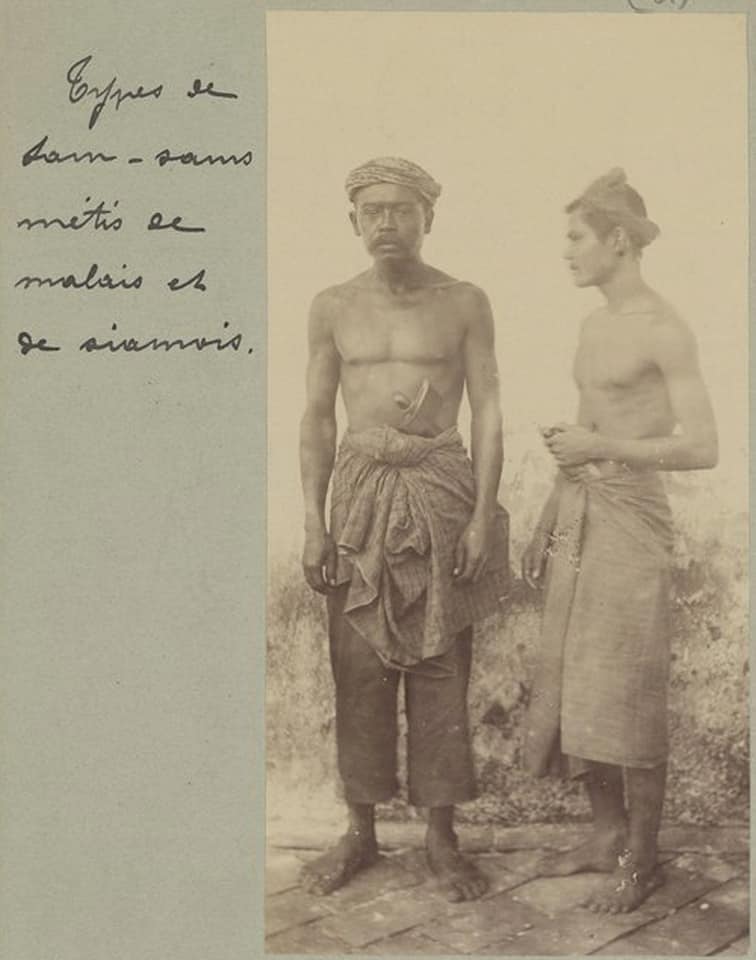 Types de
Sam-sams
métis de
malais et
de siamois.